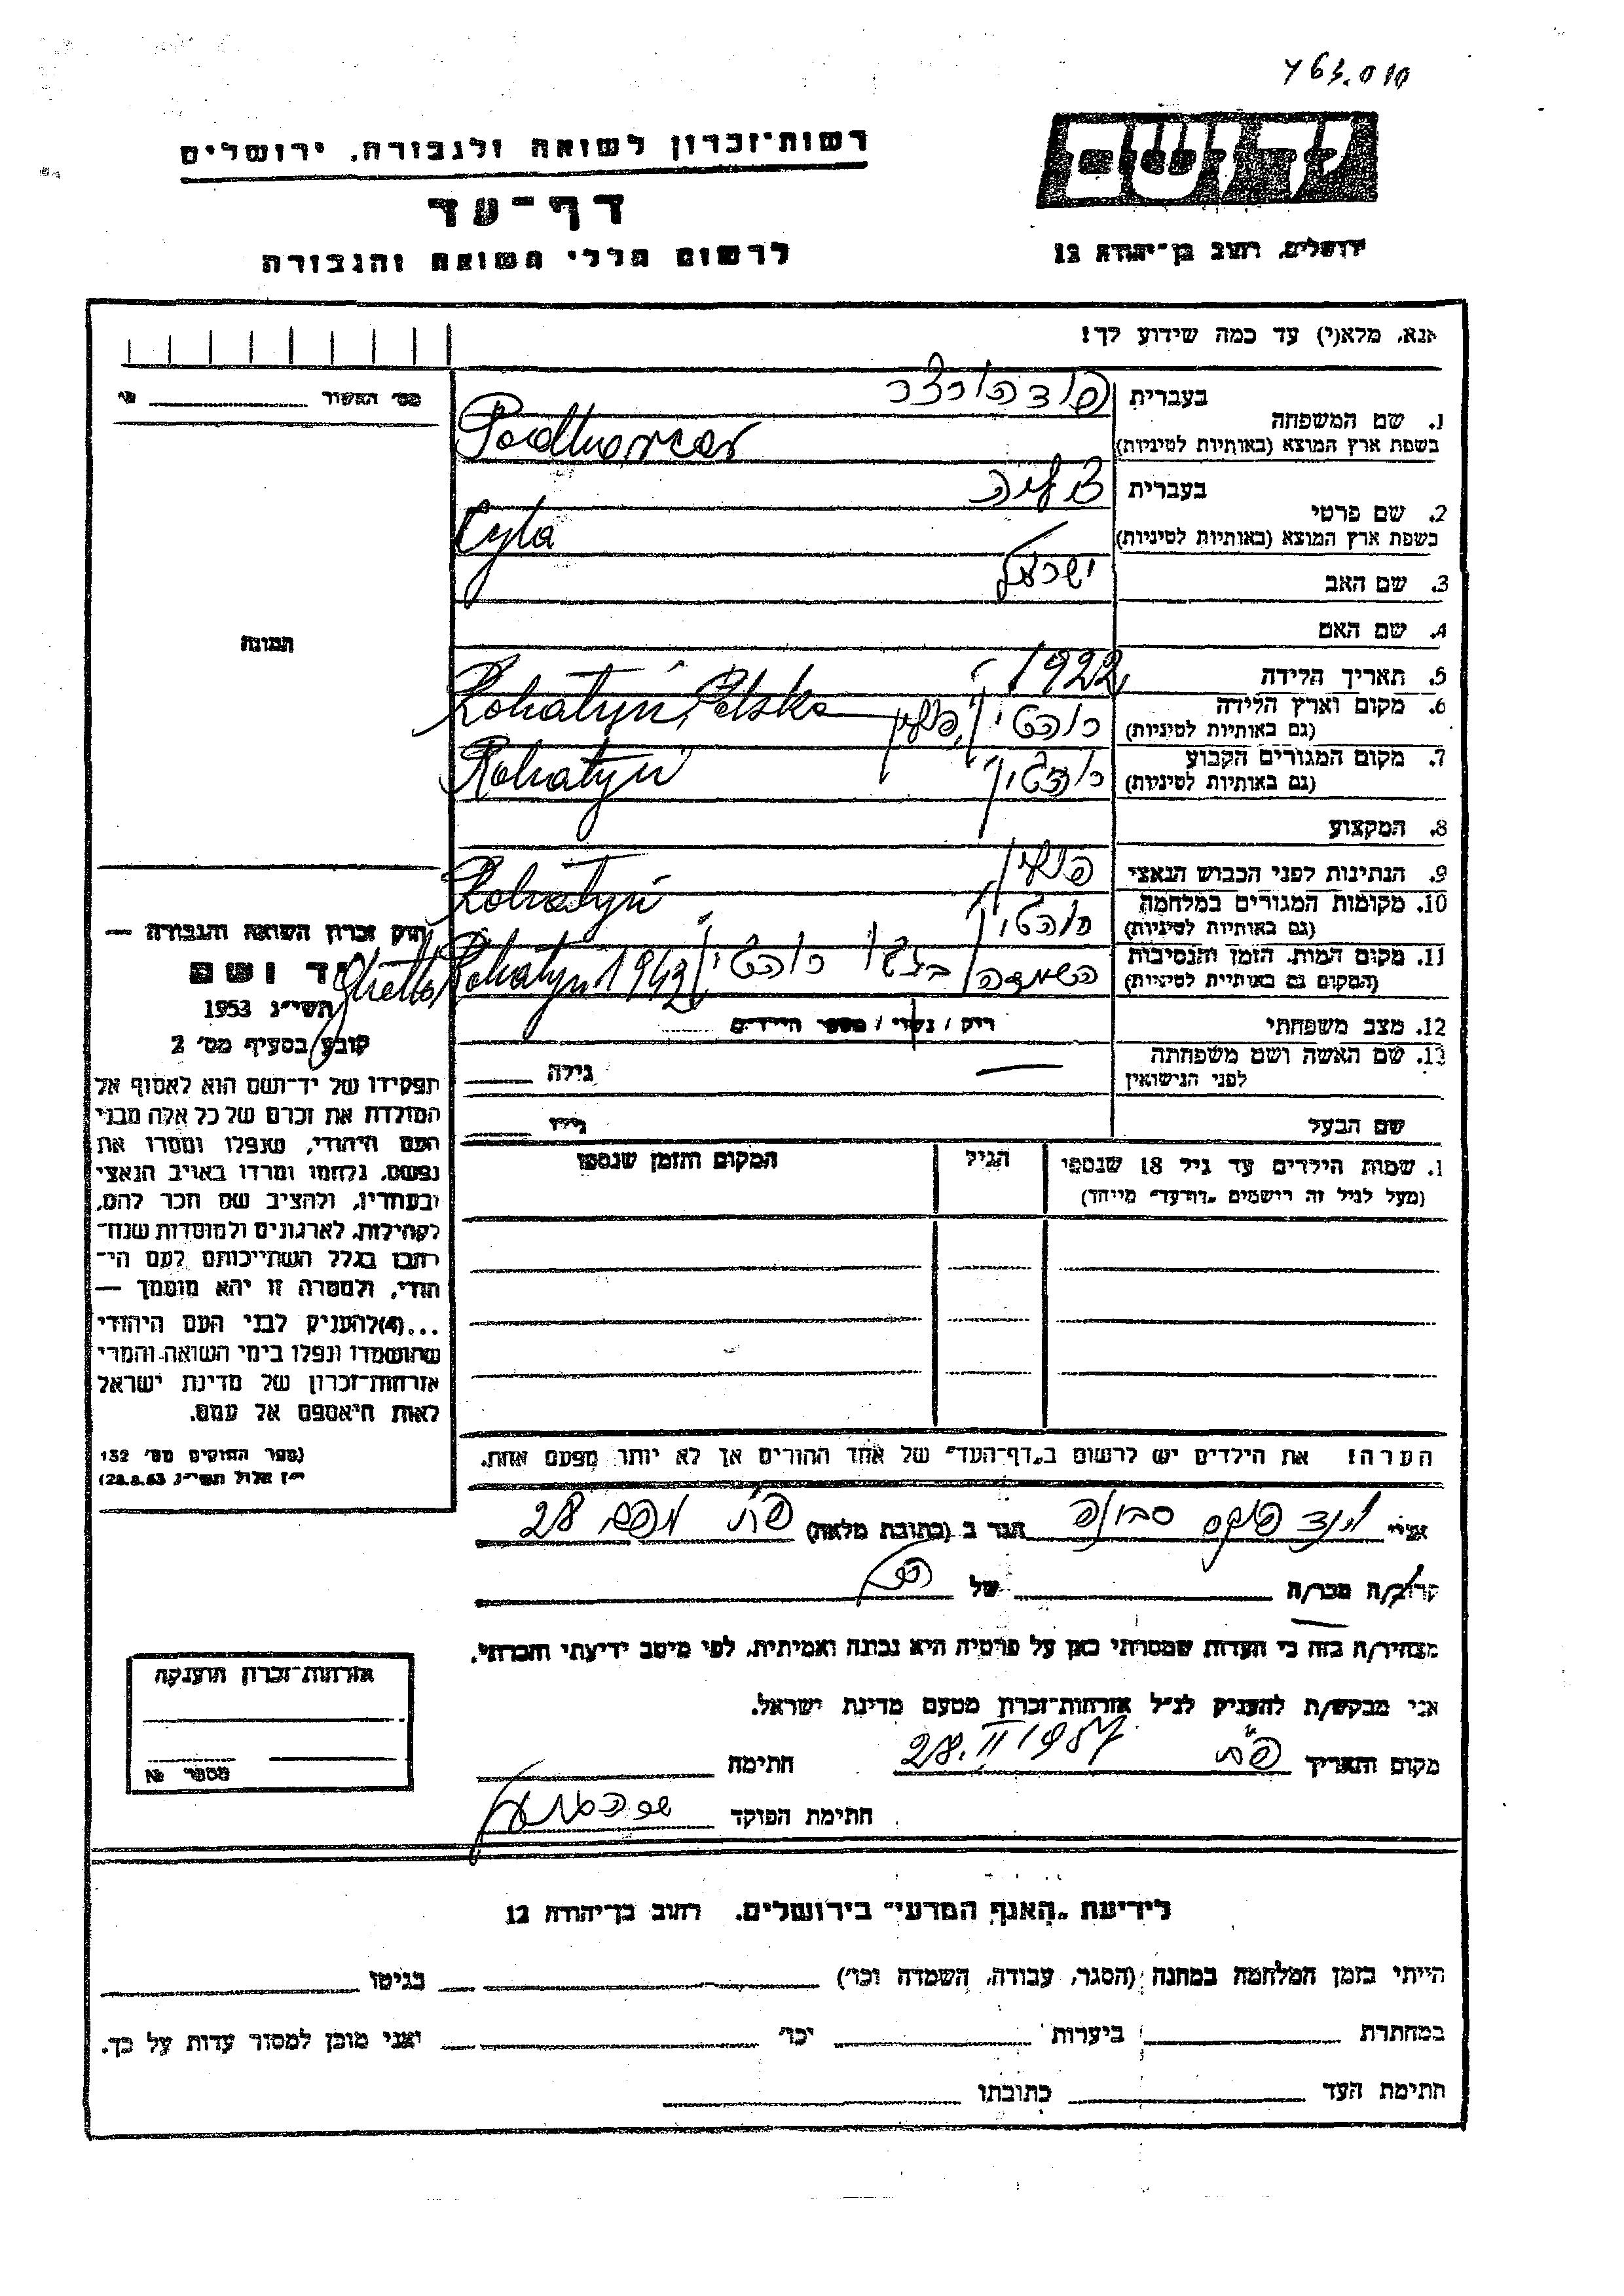 763.010
רשות־זכרון לשואה ולגבורה, ירושלים
דף־עד
לרשום חללי השואה והגבורה
יד ושם
ירושלים, רחוב בן־יהודה 12
אנא, מלא(י) עד כמה שידוע לך!
מס' האשור
1. שם המשפחה בעברית פודהורצר
בשפת ארץ המוצא (באותיות לטיניות) Podhorcer
2. שם פרטי בעברית צילה
בשפת ארץ המוצא (באותיות לטיניות) Cyla
3. שם האב ישראל
4. שם האם
תמונה
5. תאריך הלידה 1922
6. מקום וארץ הלידה
(גם באותיות לטיניות) רוהטין, פולין Rohatyń, Polska
7. מקום המגורים הקבוע
(גם באותיות לטיניות) רוהטין Rohatyń
8. המקצוע
9. הנתינות לפני הכבוש הנאצי פולין
10. מקומות המגורים במלחמה
(גם באותיות לטיניות) רוהטין Rohatyń
11. מקום המות, הזמן והנסיבות
(המקום גם באותיות לטיניות) השמדה בגטו רוהטין 1943 Ghetto Rohatyn
12. מצב משפחתי רווק / נשוי / מספר הילדים
13. שם האשה ושם משפחתה
לפני הנישואין — גילה
שם הבעל גילו
1. שמות הילדים עד גיל 18 שנספו הגיל המקום והזמן שנספו
(מעל לגיל זה רושמים "דף־עד" מיוחד)
חוק זכרון השואה והגבורה —
יד ושם
תשי"ג 1953
קובע בסעיף מס' 2
תפקידו של יד־ושם הוא לאסוף אל
המולדת את זכרם של כל אלה מבני
העם היהודי, שנפלו ומסרו את
נפשם, נלחמו ומרדו באויב הנאצי
ובעוזריו, ולהציב שם וזכר להם,
לקהילות, לארגונים ולמוסדות שנח־
רבו בגלל השתייכותם לעם הי־
הודי, ולמטרה זו יהא מוסמך —
...(4) להעניק לבני העם היהודי
שהושמדו ונפלו בימי השואה והמרי
אזרחות־זכרון של מדינת ישראל
לאות היאספם אל עמם.
(ספר החוקים מס' 132
י"ז אלול תשי"ג 28.8.53)
הערה! את הילדים יש לרשום ב"דף־העד" של אחד ההורים אך לא יותר מפעם אחת.
אני הגר ב (כתובת מלאה) פ"ת 28
קרוב/ה מכר/ה של
מצהיר/ה בזה כי העדות שמסרתי כאן על פרטיה היא נכונה ואמיתית, לפי מיטב ידיעתי והכרתי.
אני מבקש/ת להעניק לנ"ל אזרחות־זכרון מטעם מדינת ישראל.
מקום ותאריך פ"ת 28.II 1957 חתימה
חתימת הפוקד
אזרחות־זכרון הוענקה
מספר №
לידיעת "האגף המדעי" בירושלים, רחוב בן־יהודה 12
הייתי בזמן המלחמה במחנה (הסגר, עבודה, השמדה וכו') בגיטו
במחתרת ביערות וכו' ואני מוכן למסור עדות על כך.
חתימת העד כתובתו